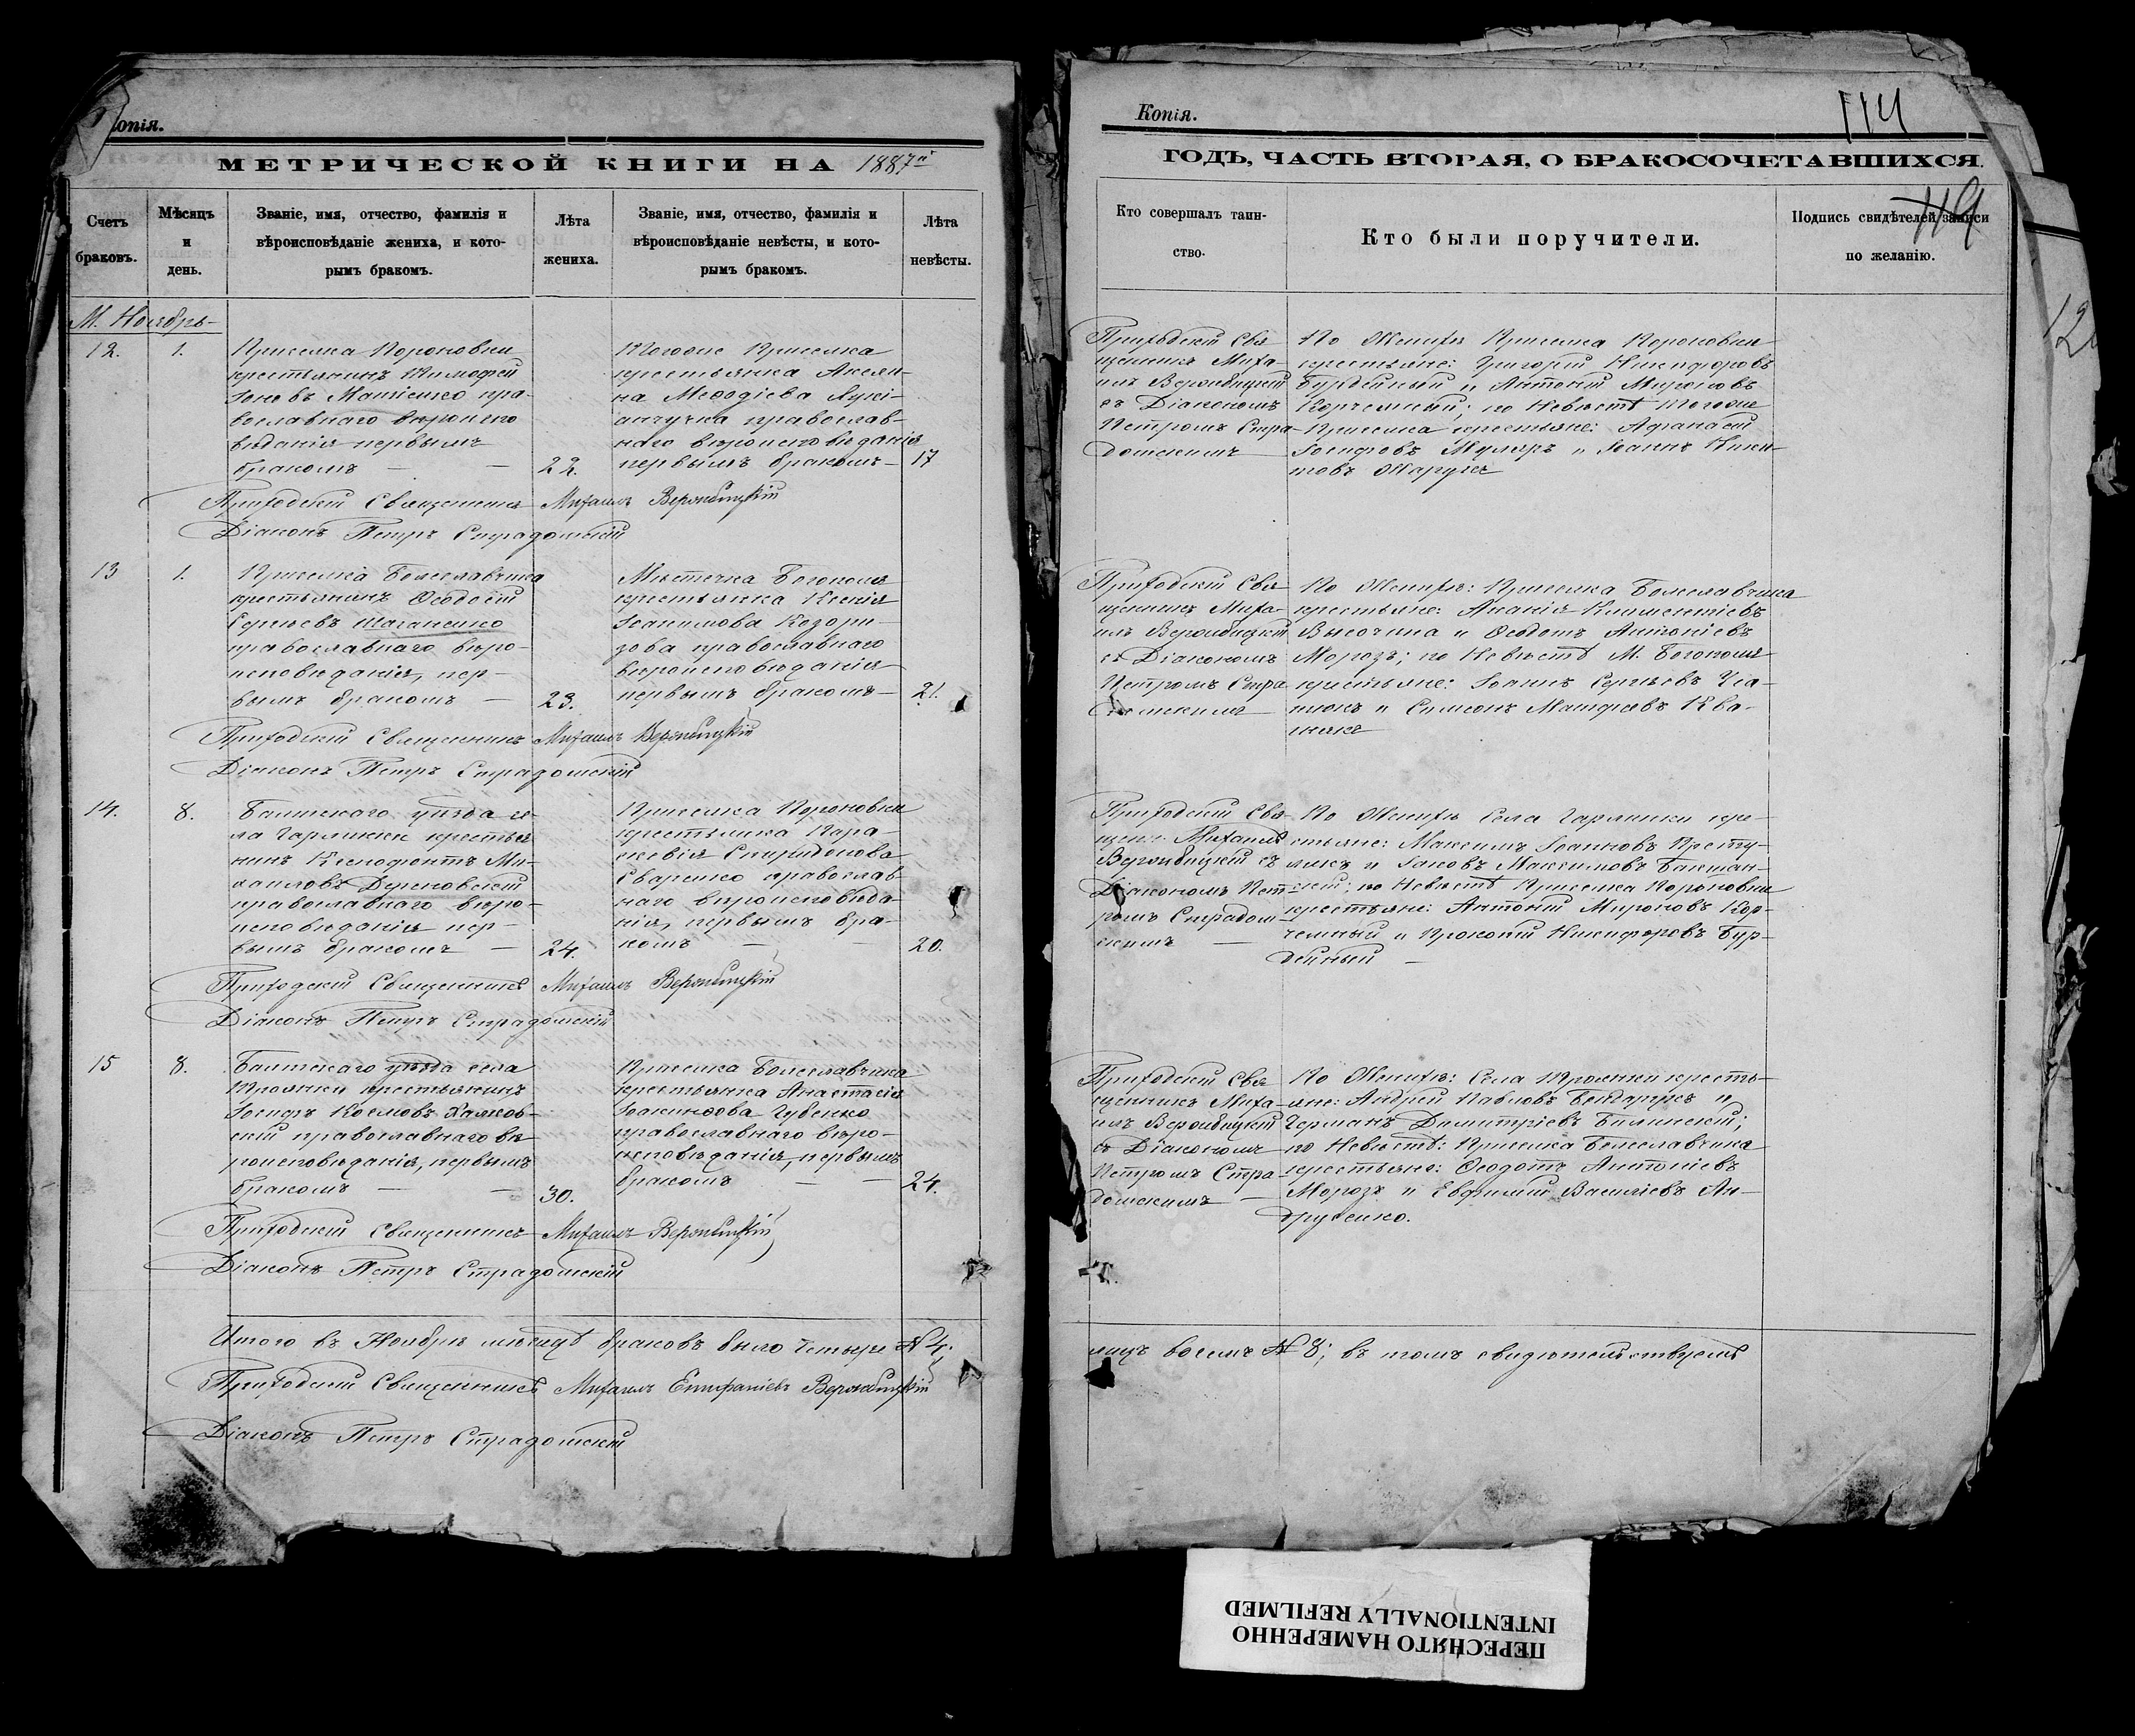 Копія.
МЕТРИЧЕСКОЙ КНИГИ НА 1887й
Счетъ браковъ.
Мѣсяцъ и день.
Званіе, имя, отчество, фамилія и вѣроисповѣданіе жениха, и которымъ бракомъ.
Лѣта жениха.
Званіе, имя, отчество, фамилія и вѣроисповѣданіе невѣсты, и которымъ бракомъ.
Лѣта невѣсты.
М. Ноябрь
12.
1.
Приселка
крестьянинъ Тимофей
Іоновъ пра-
вославнаго вѣроиспо
вѣданія первымъ
бракомъ — —
22.
Тогоже Приселка
крестьянка Акели-
на Меѳодіева Лукі-
анчучка православ-
наго вѣроисповѣданія
первымъ бракомъ —
17
Приходскій Священникъ Михаилъ Вержбицкій
Діаконъ Петръ Страдомскій
13
1.
Приселка Болеславчика
крестьянинъ Ѳеодосій
Сергѣевъ
православнаго вѣро-
исповѣданія, пер-
вымъ бракомъ —
23.
Мѣстечка Богополя
крестьянка Ксенія
Іоакимова Козори-
зова православнаго
вѣроисповѣданія
первымъ бракомъ —
21.
Приходскій Священникъ Михаилъ Вержбицкій
Діаконъ Петръ Страдомскій
14.
8.
Балтскаго уѣзда се-
ла крестья
нинъ Ксенофонтъ Ми-
хаиловъ
православнаго вѣро-
исповѣданія пер-
вымъ бракомъ —
24.
Приселка
крестьянка Пара-
скевія Спиридонова
Сваренко православ
наго вѣроисповѣда-
нія, первымъ бра-
комъ — —
20.
Приходскій Священникъ Михаилъ Вержбицкій
Діаконъ Петръ Страдомскій
15
8.
Балтскаго уѣзда села
Троянки крестьянинъ
Іосифъ Космовъ
скій православнаго вѣ
роисповѣданія, первымъ
бракомъ — —
30.
Приселка Болеславчика
крестьянка Анастасія
Губенко
православнаго вѣро-
исповѣданія, первымъ
бракомъ — —
24.
Приходскій Священникъ Михаилъ Вержбицкій
Діаконъ Петръ Страдомскій
Итого въ Ноябрѣ мѣсяцѣ браковъ было четыре № 4;
Приходскій Священникъ Михаилъ Епифаніевъ Вержбицкій
Діаконъ Петръ Страдомскій
Копія.
114
119
ГОДЪ, ЧАСТЬ ВТОРАЯ, О БРАКОСОЧЕТАВШИХСЯ.
Кто совершалъ таинство.
Кто были поручители.
Подпись свидѣтелей записи по желанію.
Приходскій Свя
щенникъ Миха-
илъ Вержбицкій
съ Діакономъ
Петромъ Стра-
домскимъ
По Женихѣ Приселка
крестьяне: Григорій Никифоровъ
Бурдейный и Антоній Мироновъ
Корчемный; по Невѣстѣ Тогоже
Приселка крестьяне: Аѳанасій
Іосифовъ Муляръ и Іоаннъ Ники-
товъ
Приходскій Свя
щенникъ Миха-
илъ Вержбицкій
съ Діакономъ
Петромъ Стра
домскимъ
По Женихѣ: Приселка Болеславчика
крестьяне: Ананія Климентіевъ
Высочина и Ѳеодотъ Антоніевъ
Морозъ; по Невѣстѣ М. Богополя
крестьяне: Іоаннъ Сергѣевъ
и Симеонъ Матфѣевъ
Приходскій Свя
щен. Михаилъ
Вержбицкій съ
Діакономъ Пет-
ромъ Страдом-
скимъ —
По Женихѣ Села кре-
стьяне: Максимъ Іоанновъ
и Іаковъ Максимовъ
по Невѣстѣ Приселка
крестьяне: Антоній Мироновъ Кор-
чемный и Прокопій Никифоровъ Бур-
дейный —
Приходскій Свя
щенникъ Миха-
илъ Вержбицкій
съ Діакономъ
Петромъ Стра-
домскимъ —
По Женихѣ: Села Троянки кресть-
яне: Андрей Павловъ Бондарукъ и
Германъ Димитріевъ Билинскій;
по Невѣстѣ: Приселка Болеславчика
крестьяне: Ѳеодотъ Антоніевъ
Морозъ и Евфимій Василіевъ Ан-
друсенко.
лицъ восемь № 8; въ томъ свидѣтельствуемъ
ПЕРЕСНЯТО НАМЕРЕННО
INTENTIONALLY REFILMED